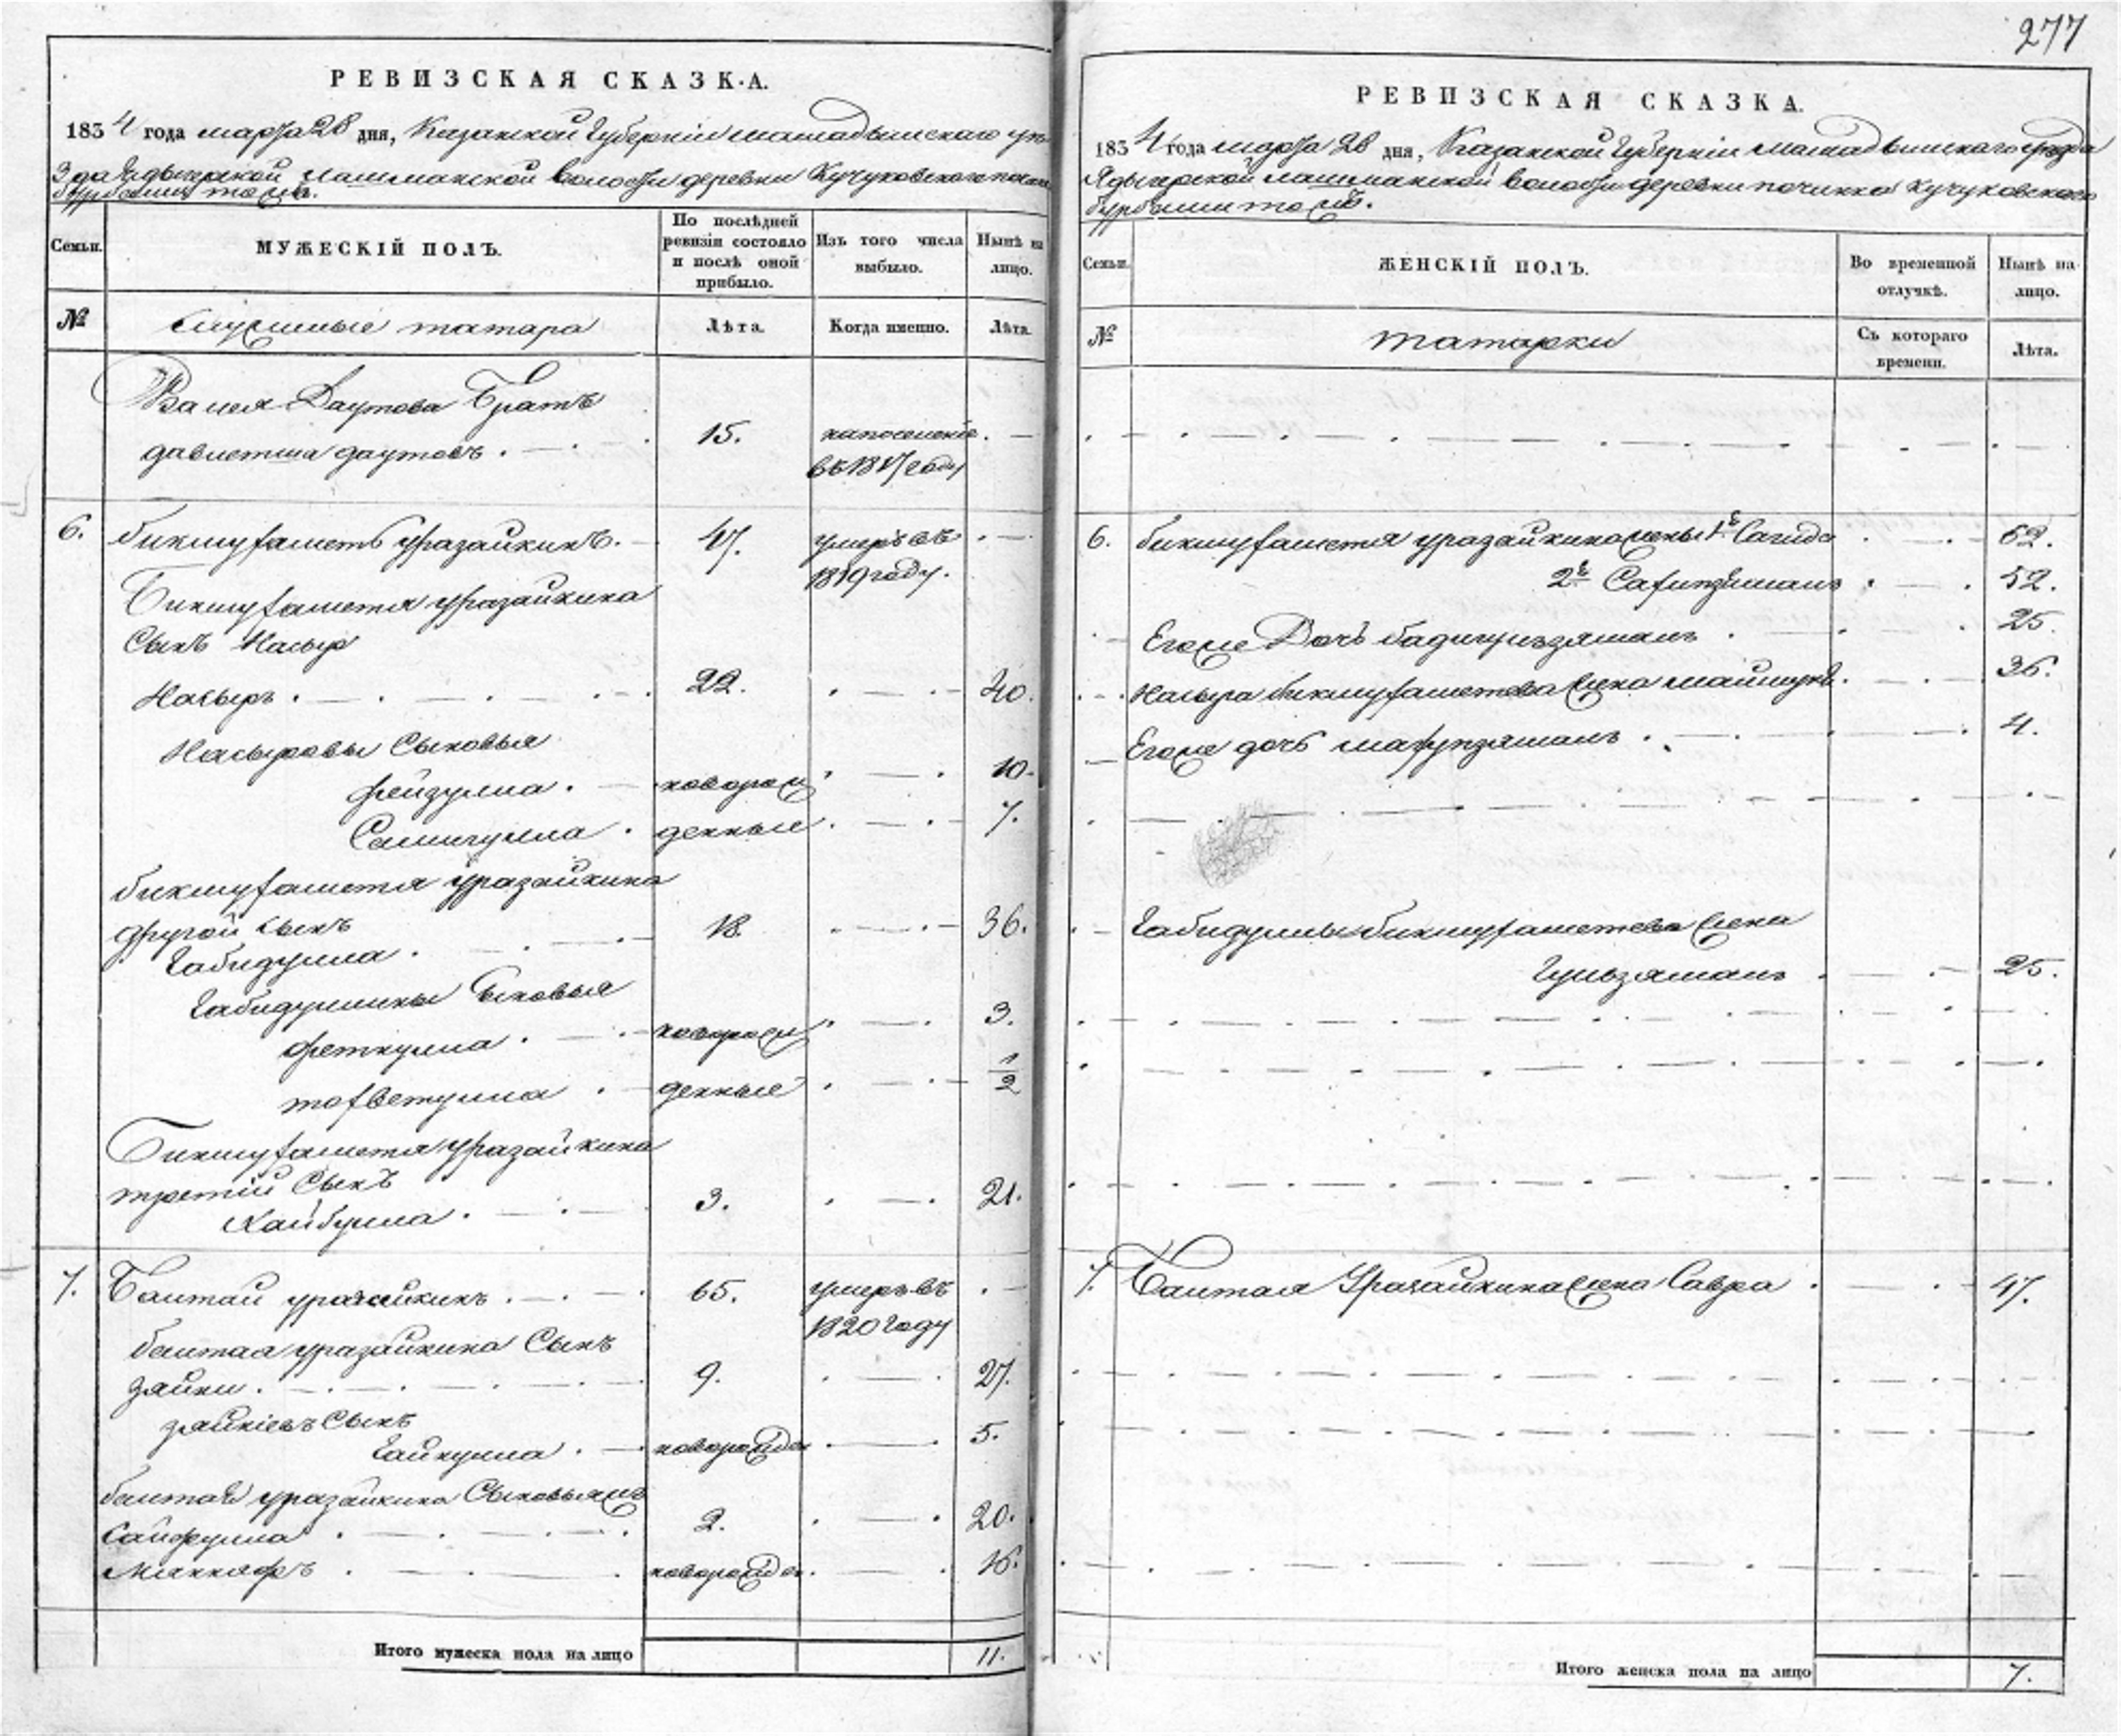 277
РЕВИЗСКАЯ СКАЗКА.
1834 года марта 28 дня, Казанской Губернiи мамадышскаго уѣ
зда Ядыгерской лашманской волости деревни Кучуковского почин
Бурбаши тожъ.
Семьи.
МУЖЕСКIЙ ПОЛЪ.
По послѣдней ревизiи состояло и послѣ оной прибыло.
Изъ того числа выбыло.
Нынѣ на лицо.
№
служилые татара
Лѣта.
Когда именно.
Лѣта.
Валея Даутова Братъ
давлетша даутовъ. 15. на поселенiе. в 1817 году
6. бикмухаметъ уразайкинъ. 47. умеръ въ
1819 году.
Бикмухаметя уразайкина
Сынъ Насыр
Насыръ. 22. 40.
Насыровы Сыновья
фейзулла. новорож 10.
Самигулла. денные 7.
бикмухаметя уразайкина
другой сынъ 18. 36.
Габидулла.
Габидуллины Сыновья
феткулла. новорож 3.
тохветулла. денные 1/2
Бикмухаметя уразайкина
третiй Сынъ
Хайбулла. 3. 21.
7. Бактай уразайкинъ. 65. умеръ въ
1820 году
бактая уразайкина Сынъ
Зяйки. 9. 27.
зяйкiевъ Сынъ
Гайкулла. новорожден 5.
бактая уразайкина Сыновья жъ
Сайфулла. 2. 20.
Маннафъ. новорожден. 16.
Итого мужеска пола на лицо 11.
РЕВИЗСКАЯ СКАЗКА.
1834 года марта 28 дня, Казанской Губернiи мамадышскаго уѣзда
Ядыгерской лашманской волости деревни починка кучуковского
бурбаши тожъ.
Семьи.
ЖЕНСКIЙ ПОЛЪ.
Во временной отлучкѣ.
Нынѣ на лицо.
№
татарки
Съ котораго времени.
Лѣта.
6. бикмухаметя уразайкина жены 1я Сагида 62.
2я 52.
Егоже Дочь бадигулзямалъ. 25.
Насыра бикмухаметова жена 36.
Егоже дочь 4.
Габидуллы бикмухаметова жена
Гульзямалъ. 25.
7. Бактая Уразайкина жена Савра. 47.
Итого женска пола на лицо 7.